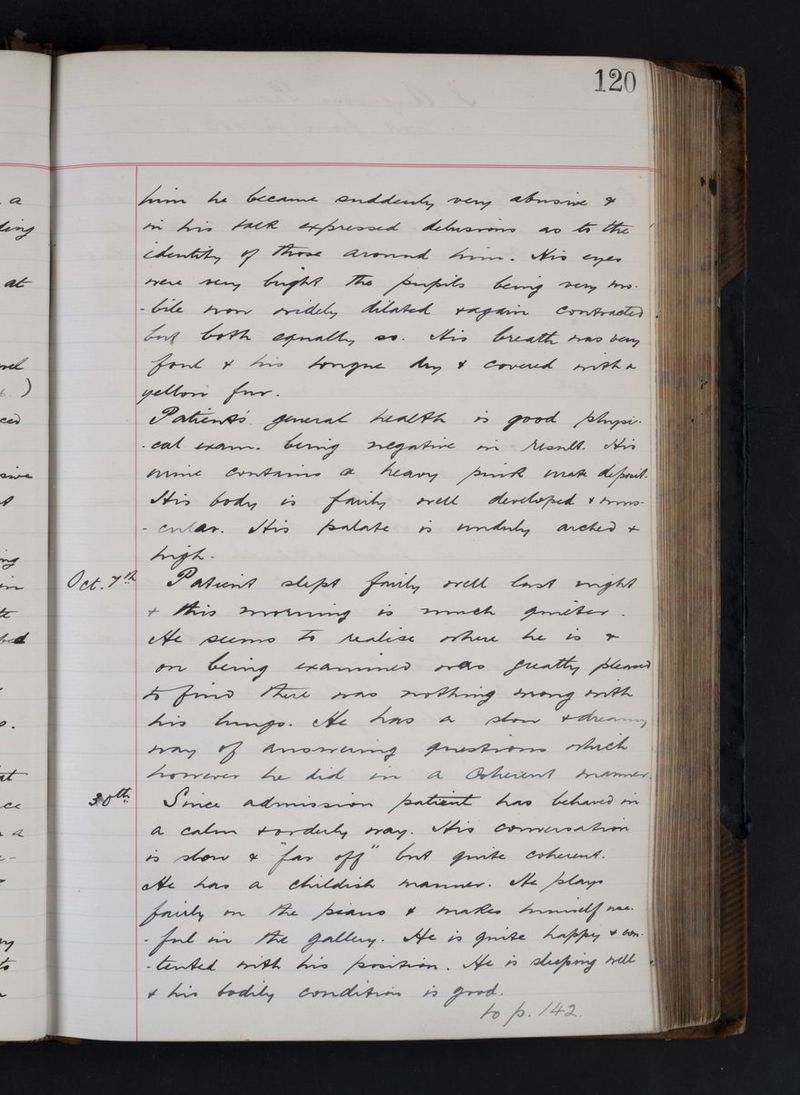 120
him he became suddenly very abusive &
in his talk expressed delusions as to the
identity of those around him. His eyes
were very bright the pupils being very mo-
-bile now widely dilated & again contracted
but both equally so. His breath was very
foul & his tongue dry & covered with a
yellow fur.
Patient's general health is good physi-
-cal exam. being negative in result. His
urine contains a heavy pink urate deposit.
His body is fairly well developed & mus-
-cular. His palate is unduly arched &
high.
Oct. 7th Patient slept fairly well last night
& this morning is much quieter.
He seems to realise where he is &
on being examined was greatly pleased
to find there was nothing wrong with
his lungs. He has a slow & dreamy
way of answering questions which
however he did in a coherent manner.
30th Since admission patient has behaved in
a calm & orderly way. His conversation
is slow & "far off" but quite coherent.
He has a childish manner. He plays
fairly on the piano & makes himself use-
-ful in the gallery. He is quite happy & con-
-tented with his position. He is sleeping well
& his bodily condition is good.
to p. 142.